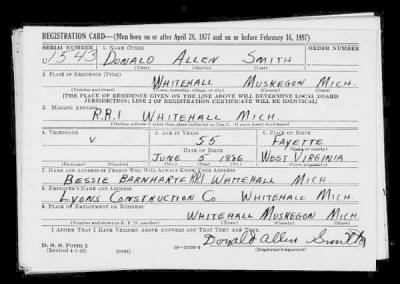 REGISTRATION CARD—(Men born on or after April 28, 1877 and on or before February 16, 1897)
SERIAL NUMBER 1. NAME (Print) ORDER NUMBER
1543 DONALD ALLEN SMITH
(First) (Middle) (Last)
2. PLACE OF RESIDENCE (Print)
WHITEHALL MUSKEGON MICH.
(Number and street) (Town, township, village, or city) (County) (State)
[THE PLACE OF RESIDENCE GIVEN ON THE LINE ABOVE WILL DETERMINE LOCAL BOARD
JURISDICTION; LINE 2 OF REGISTRATION CERTIFICATE WILL BE IDENTICAL]
3. MAILING ADDRESS
R.R.1 WHITEHALL MICH.
[Mailing address if other than place indicated on line 2. If same insert word same]
4. TELEPHONE 5. AGE IN YEARS 6. PLACE OF BIRTH
V 55 FAYETTE
DATE OF BIRTH (Town or county)
JUNE 5 1886 WEST VIRGINIA
(Exchange) (Number) (Mo.) (Day) (Yr.) (State or country)
7. NAME AND ADDRESS OF PERSON WHO WILL ALWAYS KNOW YOUR ADDRESS
BESSIE BARNHARTE RR1 WHITEHALL MICH
8. EMPLOYER'S NAME AND ADDRESS
LYONS CONSTRUCTION CO WHITEHALL MICH.
9. PLACE OF EMPLOYMENT OR BUSINESS
WHITEHALL MUSKEGON MICH.
(Number and street or R. F. D. number) (Town) (County) (State)
I AFFIRM THAT I HAVE VERIFIED ABOVE ANSWERS AND THAT THEY ARE TRUE.
D. S. S. Form 1 Donald Allen Smith
(Revised 4-1-42) (over) (Registrant's signature)